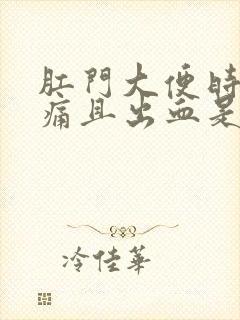 肛門大便時
痛且出血是
冷佳華